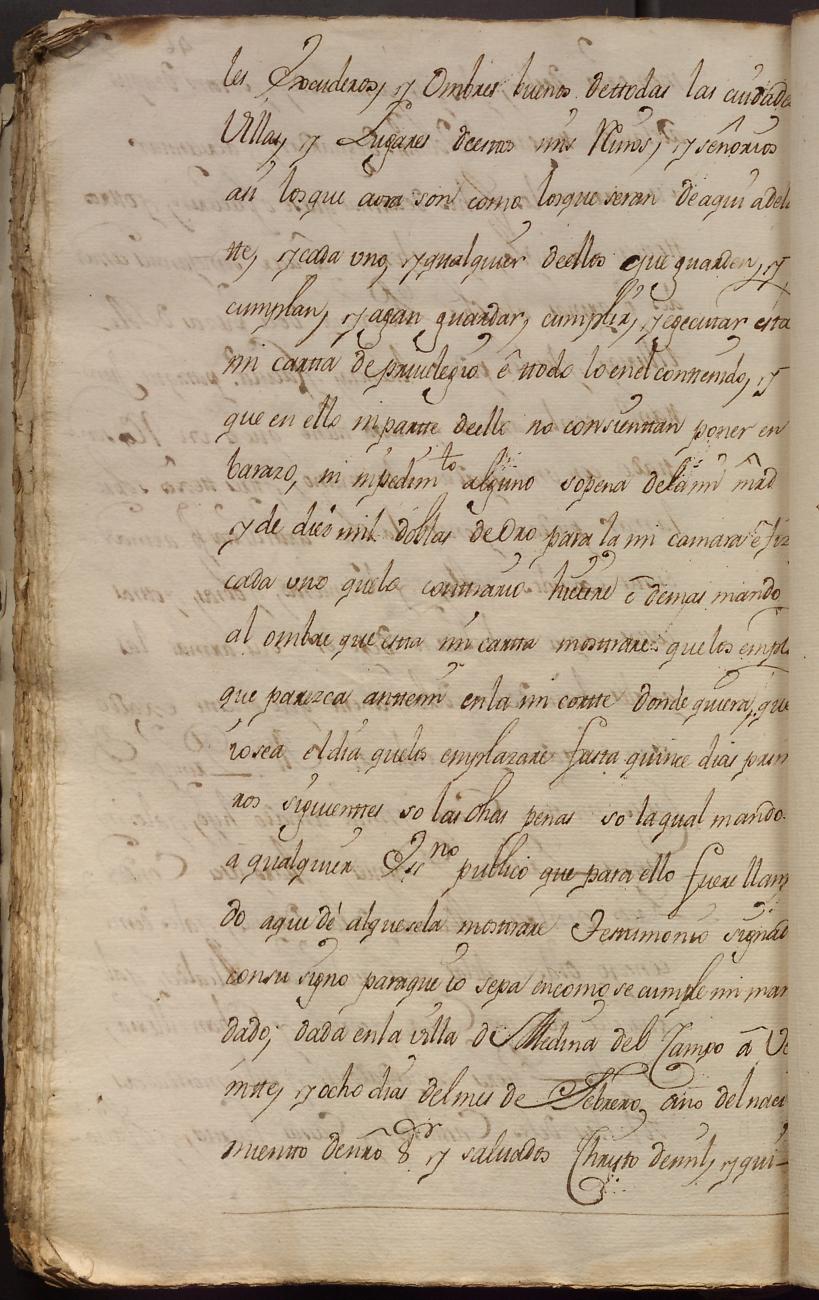 les Escuderos, y Ombres buenos dettodas las ciudade
Villas, y Lugares destos mis Rinos, y señorios
asi losque aora son como losque seran deaqui adela
tte, y cada uno, y qualquier deellos que guarden, y
cumplan, y agan guardar, cumplir, y egecutar esta
mi cartta de priuilegio é ttodo lo enel conttenido, y
que en ello ni partte deello no consienttan poner en
barazo, ni inpedimto alguno sopena dela mi mrd
y de dies mil doblas de Oro para la mi camara é fiz
cada uno quelo conttrario hiciere é demas mando
al ombre que estta mi cartta mosttrare que los empla
que parezca anttemi enla mi cortte donde quiera, que
io sea el dia quelos emplazare fasta quince dias prim
ros siguienttes so las dhas penas so laqual mando
a qualquier Essno publico que para ello fuere llam
do aque dé alquesela mosttrare Testimonio signad
consu signo paraque io sepa encomo se cumple mi man
dado; dada enla villa de Medina del Campo á Ve
intte, y ocho dias del mes de Febrero, año del naci
mientto denro Sr y saluador Christo demil, y qui-